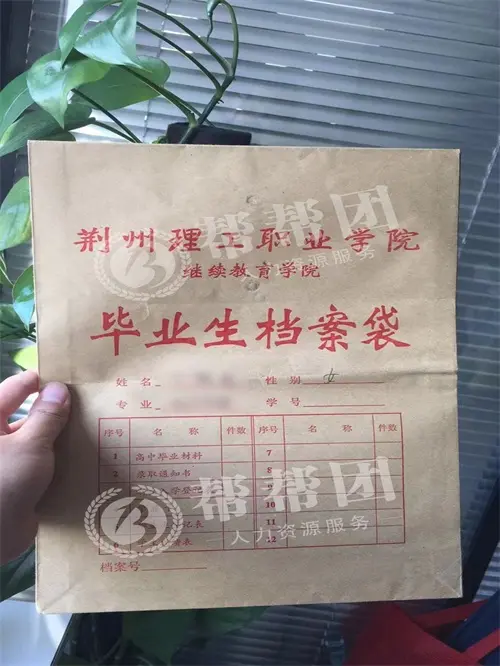 荆州理工职业学院
继续教育学院
毕业生档案袋
姓名 性别 女
专业 学号
序号 名称 件数 序号 名称 件致
1 高中毕业材料 7
2 录取通知书 8
学登记 9
10
记表 11
表 12
档案号
帮帮团
人力资源服务
帮帮团
人力资源服务